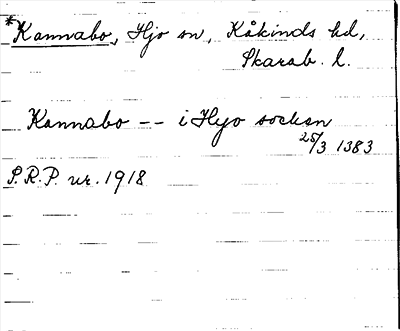 *Kannabo, Hjo sn, Kåkinds hd,
Skarab. l.
Kannabo -- i Hyo socken
25/3 1383
S.R.P. nr. 1918